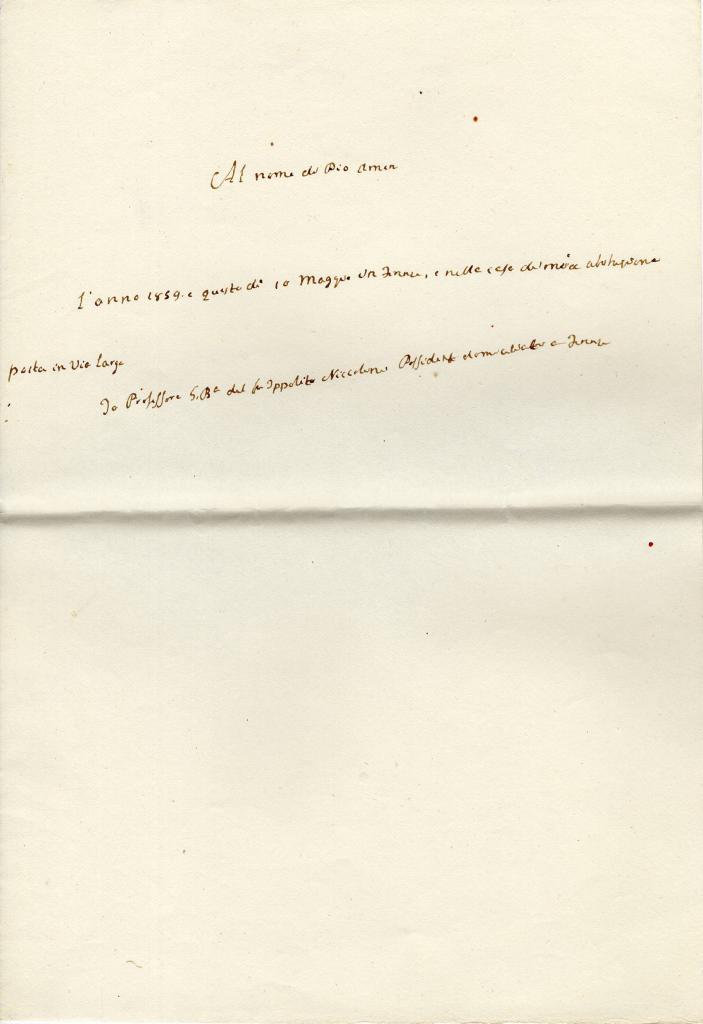 Al nome di Dio Amen
L'anno 1859. e questo dì 10 Maggio in Firenze, e nella casa di mia abitazione
posta in Via Larga
Io Professore G. Bª del fu Ippolito Niccolini Possidente domiciliato a Firenze